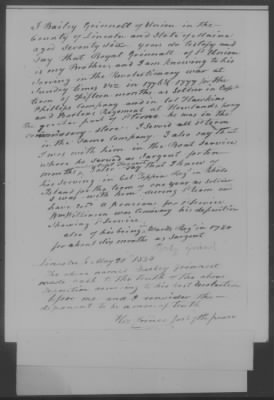 I Bailey Grinnell of Union in the
County of Lincoln and State of Maine
aged Seventy six years do testify and
say that Royal Grinnell of Sd Union
is my Brother and I am knowing to his
serving in the Revolutionary war at
Sundry times viz. in 1776 & 1777 for the
term of fifteen months as Soldier in Capt
Phillips Company and in Col
and Barton's Regiment at Howlands ferry
the greater part of time he was in the
Commissary store. I lived at Steam
in the Same Company I also say that
I was with him in the Boat Service
where he served as Sargent for
months, I also say that I knew of
his serving in Col Topham Regt in Rhode
Island for the term of one year as soldier
I was with him during
have got a pension for Sd Service
was knowing his deposition
shewing Sd Service
also of his being, Regt in 1780
for about six months as Sargent
Bailey Grinnell
Lincoln S. May 28 1834
The above named Bailey Grinnell
made oath to the truth of the above
deposition according to his best recollection
before me and I consider the
deponent to be a man of truth
justice of the peace